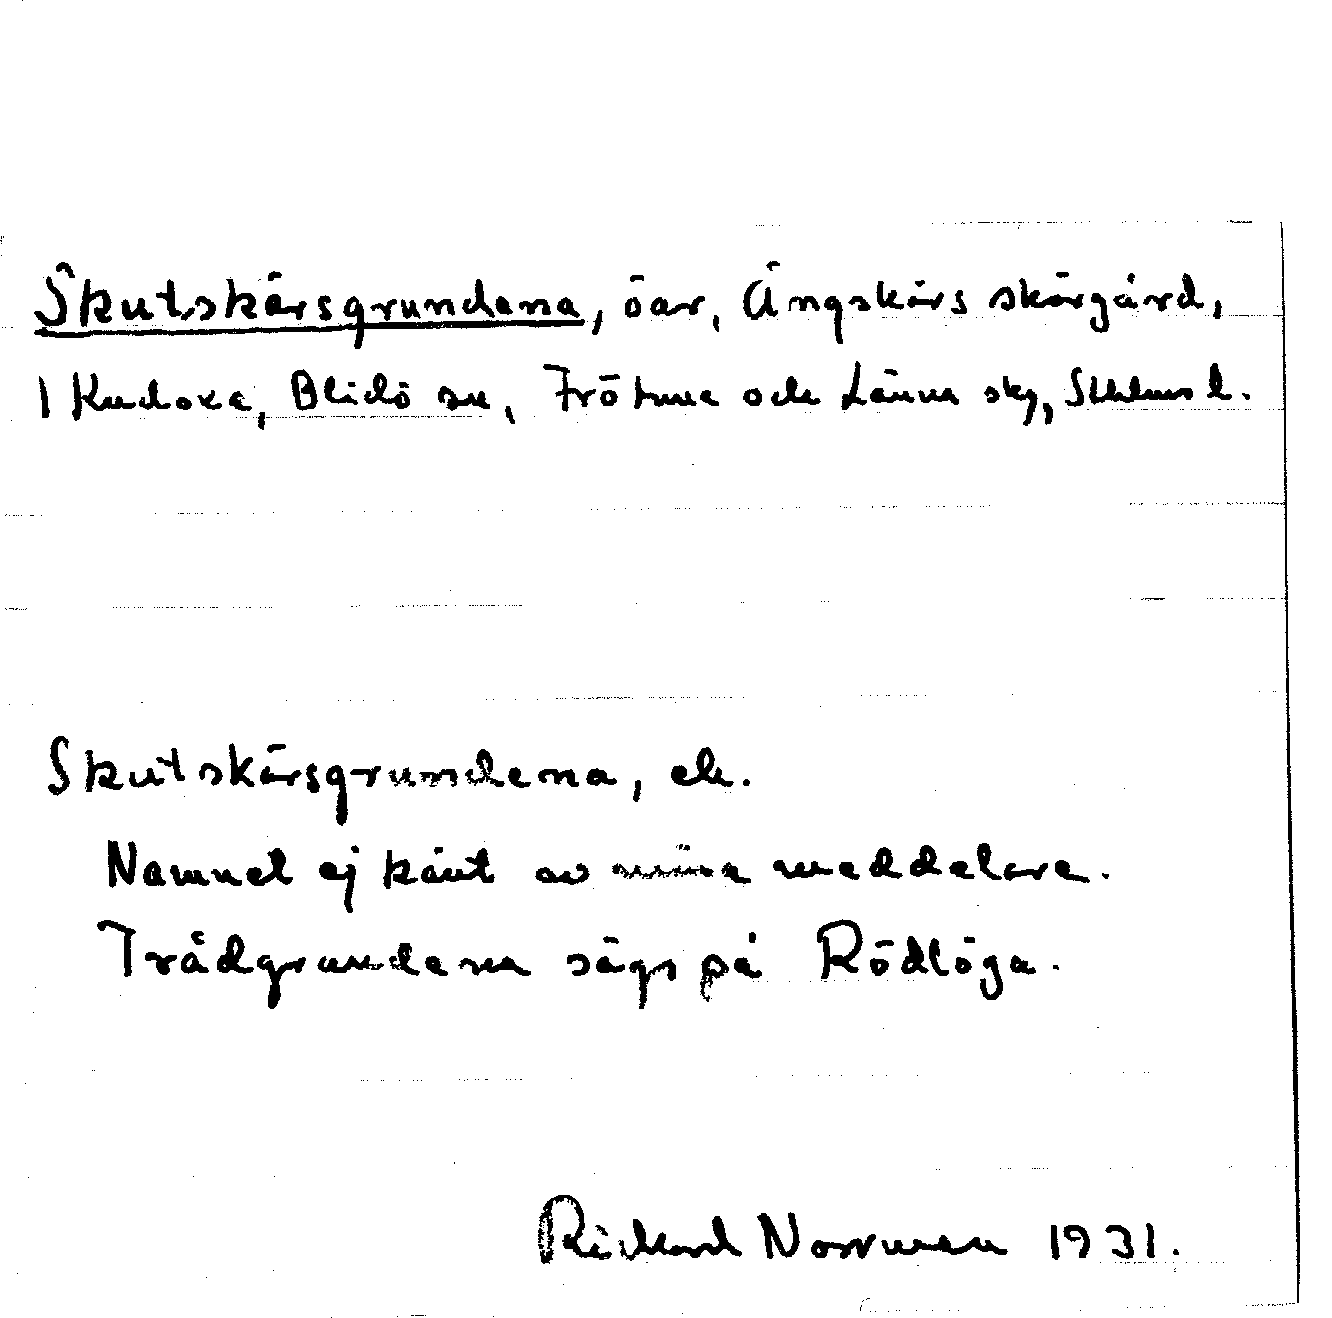 Skutskärsgrundena, öar, Ängskärs skärgård,
1 Kudoxa, Blidö sn, Frötuna och Länna sky, Sthlms l.
Skutskärsgrundena, ek.
Namnet ej känt av mina meddelare.
Trådgrundena sägs på Rödlöga.
Rickard Norrman 1931.